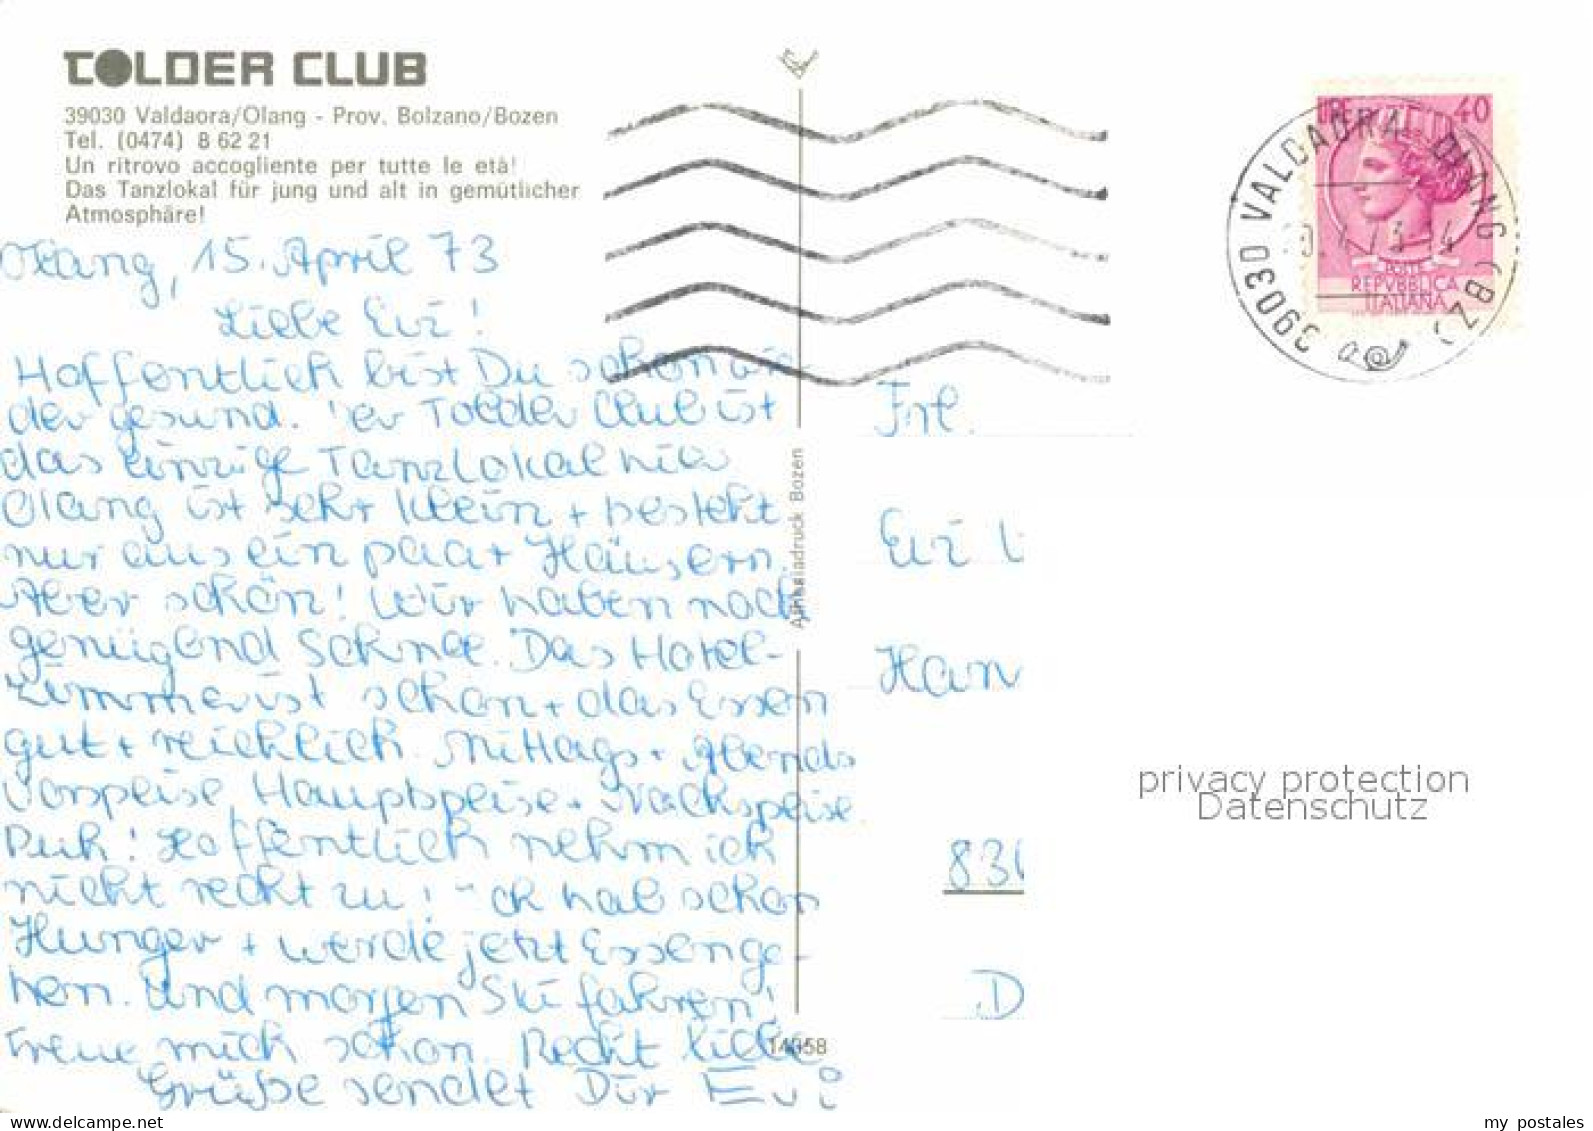 TOLDER CLUB
39030 Valdaora/Olang - Prov. Bolzano/Bozen
Tel. (0474) 8 62 21
Un ritrovo accogliente per tutte le età!
Das Tanzlokal für jung und alt in gemütlicher
Atmosphäre!
Olang, 15. April 73
Liebe Evi!
Hoffentlich bist Du schon wie
der gesund. Der Tolder Club ist
das einzige Tanzlokal hier
Olang ist sehr klein + besteht
nur aus ein paar Häusern.
Aber schön! Wir haben noch
genügend Schnee. Das Hotel-
zimmer ist schön + das Essen
gut + reichlich. Mittags + Abends
Vorspeise, Hauptspeise + Nachspeise.
Puh! Hoffentlich nehm ich
nicht recht zu! Ich hab schon
Hunger + werde jetzt Essenge-
hen. Und morgen Ski fahren!
Freue mich schon. Recht liebe
Grüße sendet Dir Evi
Druck Bozen
14358
LIRE 40
POSTE
REPVBBLICA
ITALIANA
39030 VALDAORA OLANG (BZ)
Frl.
Evi
Han
83
D
privacy protection
Datenschutz
my postales